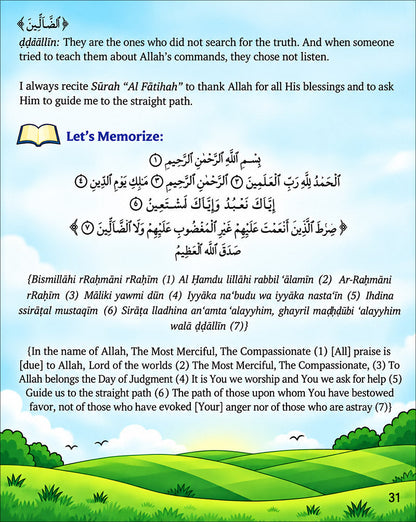 ﴿ٱلضَّآلِّينَ﴾
ḍḍāāllīn: They are the ones who did not search for the truth. And when someone
tried to teach them about Allah's commands, they chose not listen.
I always recite Sūrah "Al Fātihah" to thank Allah for all His blessings and to ask
Him to guide me to the straight path.
Let's Memorize:
بِسْمِ ٱللَّهِ ٱلرَّحْمَٰنِ ٱلرَّحِيمِ ١
ٱلْحَمْدُ لِلَّهِ رَبِّ ٱلْعَٰلَمِينَ ٢ ٱلرَّحْمَٰنِ ٱلرَّحِيمِ ٣ مَٰلِكِ يَوْمِ ٱلدِّينِ ٤
إِيَّاكَ نَعْبُدُ وَإِيَّاكَ لَمسْتَعِينُ ٦
﴿ صِرَٰطَ ٱلَّذِينَ أَنْعَمْتَ عَلَيْهِمْ غَيْرِ ٱلْمَغْضُوبِ عَلَيْهِمْ وَلَا ٱلضَّآلِّينَ ٧ ﴾
صَدَقَ ٱللَّه ٱلعَظِيمُ
{Bismillāhi rRaḥmāni rRaḥīm (1) Al Ḥamdu lillāhi rabbil ‘ālamīn (2) Ar-Raḥmāni
rRaḥīm (3) Māliki yawmi dūn (4) Iyyāka na‘budu wa iyyāka nasta‘īn (5) Ihdina
ssirāṭal mustaqīm (6) Sirāṭa lladhina an‘amta ‘alayyhim, ghayril maḍḥḍūbi ‘alayyhim
walā ḍḍāllīn (7)}
{In the name of Allah, The Most Merciful, The Compassionate (1) [All] praise is
[due] to Allah, Lord of the worlds (2) The Most Merciful, The Compassionate, (3) To
Allah belongs the Day of Judgment (4) It is You we worship and You we ask for help (5)
Guide us to the straight path (6) The path of those upon whom You have bestowed
favor, not of those who have evoked [Your] anger nor of those who are astray (7)}
31